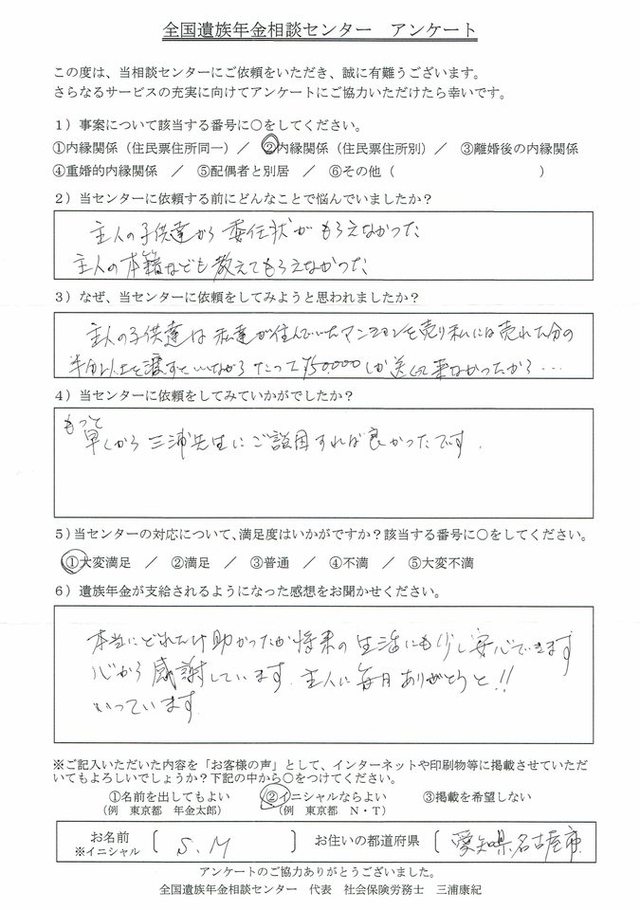 全国遺族年金相談センター　アンケート
この度は、当相談センターにご依頼をいただき、誠に有難うございます。
さらなるサービスの充実に向けてアンケートにご協力いただけたら幸いです。
1）事案について該当する番号に○をしてください。
①内縁関係（住民票住所同一）／　②内縁関係（住民票住所別）／　③離婚後の内縁関係
④重婚的内縁関係　／　⑤配偶者と別居　／　⑥その他（　　　　　　　　　　）
2）当センターに依頼する前にどんなことで悩んでいましたか？
主人の子供達から委任状がもらえなかった
主人の本籍なども教えてもらえなかった
3）なぜ、当センターに依頼をしてみようと思われましたか？
主人の子供達は私達が住んでいたマンションを売り私には売れた分の
半分以上を渡すといいながらたって¥50000しか送って来なかったから…
4）当センターに依頼をしてみていかがでしたか？
もっと
早くから三浦先生にご説明すれば良かったです.
5）当センターの対応について、満足度はいかがですか？該当する番号に○をしてください。
①大変満足　／　②満足　／　③普通　／　④不満　／　⑤大変不満
6）遺族年金が支給されるようになった感想をお聞かせください。
本当にどれだけ助かったか将来の生活にも少し安心できます
心から感謝しています.主人に毎日ありがとうと!!
いっています.
※ご記入いただいた内容を「お客様の声」として、インターネットや印刷物等に掲載させていただ
いてもよろしいでしょうか？下記の中から○をつけてください。
①名前を出してもよい　　②イニシャルならよい　　③掲載を希望しない
（例　東京都　年金太郎）　　（例　東京都　N・T）
お名前
※イニシャル　〔　S.M　〕　お住いの都道府県　〔　愛知県名古屋市　〕
アンケートのご協力ありがとうございました。
全国遺族年金相談センター　代表　社会保険労務士　三浦康紀